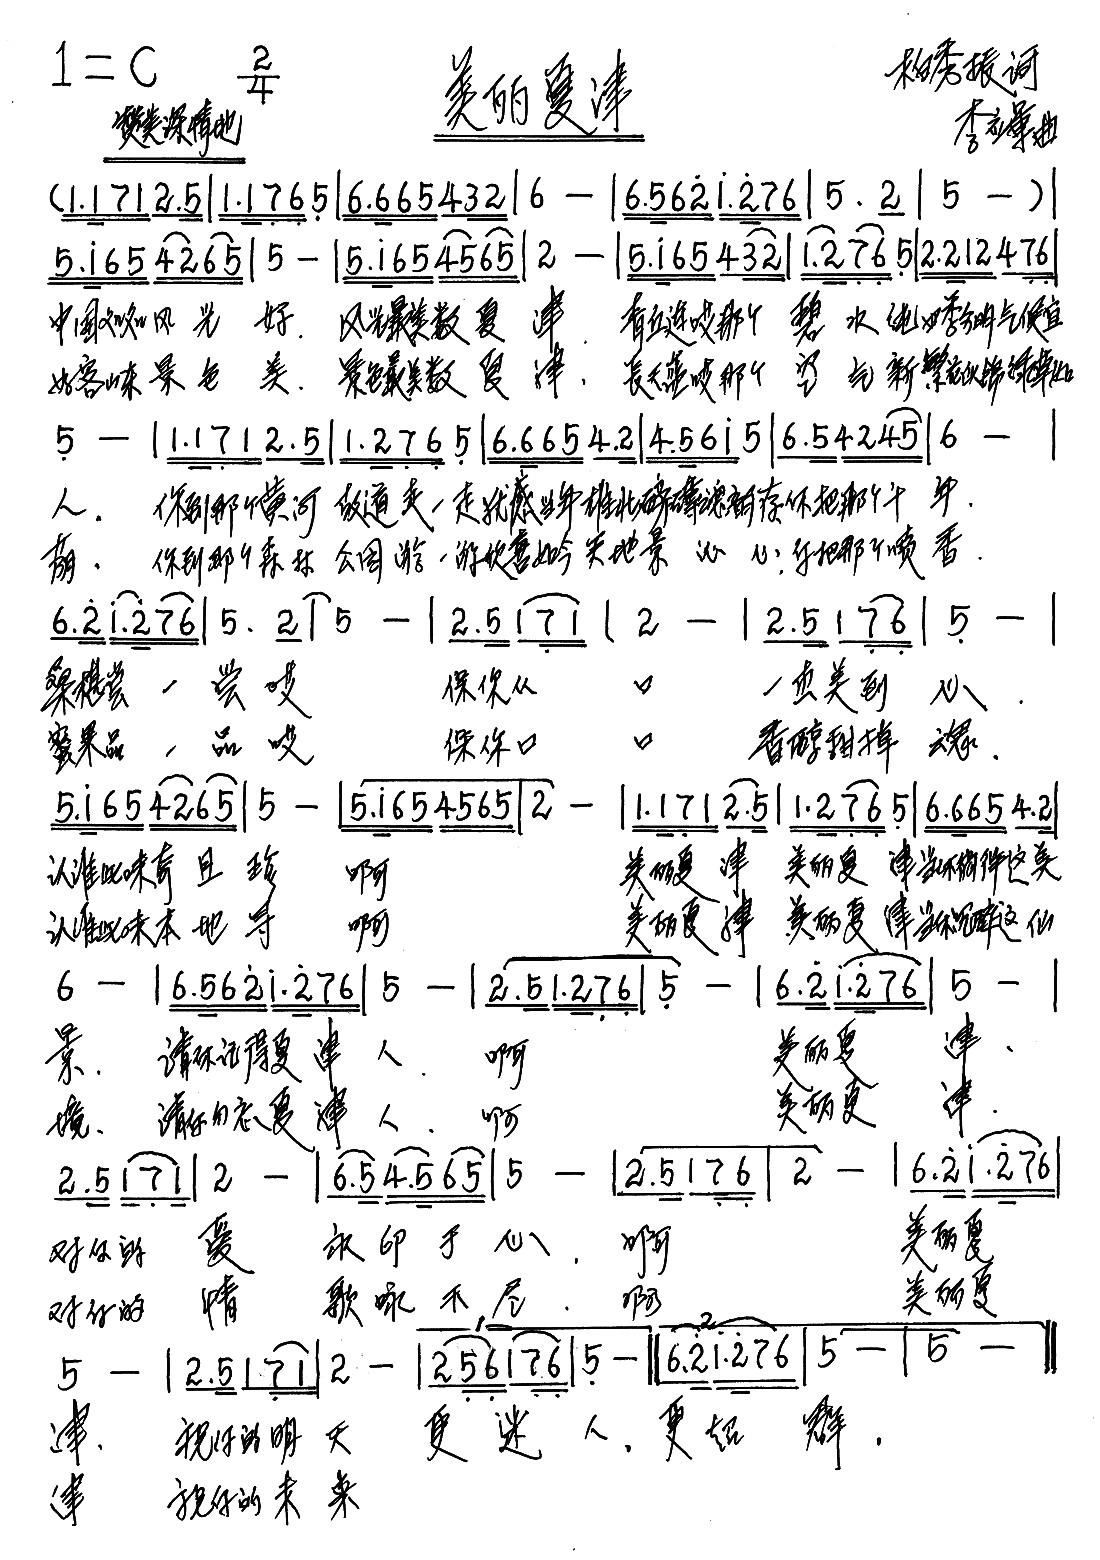 1=C 2/4 美丽夏津 柏秀振词
赞美深情地 李 曲
(1.171 2.5|1.176 5|6.665 432|6 -|6.562 1.276|5 . 2|5 -)|
5.165 4265|5 -|5.165 4565|2 -|5.165 432|1.276 5|2.212 476|
中国 风光好. 风光最美数夏津. 哎那个碧水 四季分明气候宜
好客山东景色美. 景色最美数夏津. 长天蓝哎那个空气新繁花似锦绿草如
5 -|1.171 2.5|1.276 5|6.665 4.2|4.561 5|6.5 4245|6 -|
人. 你到那个黄河故道走一走 你把那个
茵. 你到那个森林公园游一游 景沁心;你把那个喷香.
6.2 1.276|5 . 2 1 5 -|2.5 171|2 -|2.5 176|5 -|
桑椹尝一尝哎 保你从口 一直美到心.
蜜果品一品哎 保你口口 香醇甜掉魂.
5.165 4265|5 -|5.165 4565|2 -|1.171 2.5|1.276 5|6.665 4.2|
认准此味奇且珍 啊 美丽夏津 美丽夏津 当你 这美
认准此味本地寻 啊 美丽夏津 美丽夏津 当你 这仙
6 -|6.562 1.276|5 -|2.5 1.276|5 -|6.2 1.276|5 -|
景. 请你记得夏津人. 啊 美丽夏津.
境. 请你勿忘夏津人. 啊 美丽夏津.
2.5 171|2 -|6.5 4.5 65|5 -|2.5 176|2 -|6.2 1.276|
对你的爱 永印于心. 啊 美丽夏
对你的情 歌咏不尽. 啊 美丽夏
1. 2.
5 -|2.5 171|2 -|256 176|5 -‖6.2 1.276|5 -|5 -‖
津. 祝你的明天更迷人.更超群.
津 祝你的未来